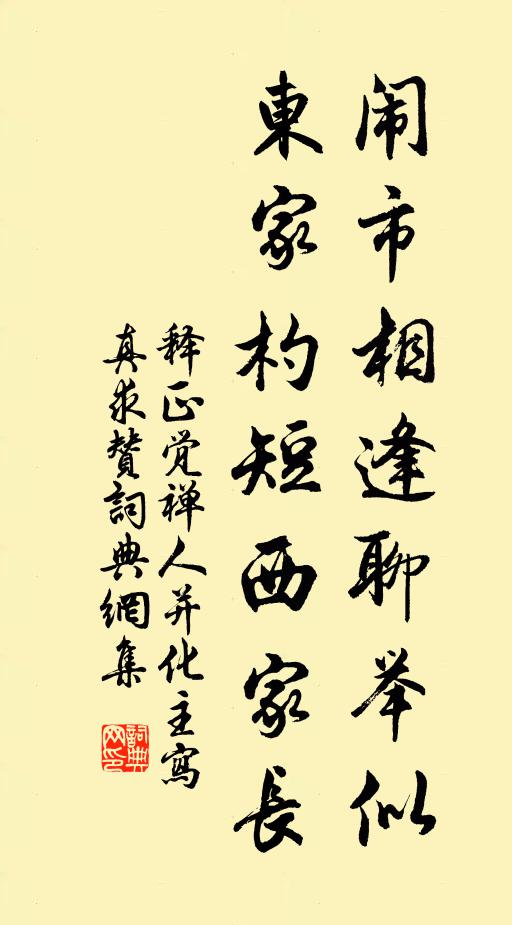 闹市相逢聊举似
東家杓短西家長
释正觉禅人并化主寫
真求贊詞典網集
詞典网印